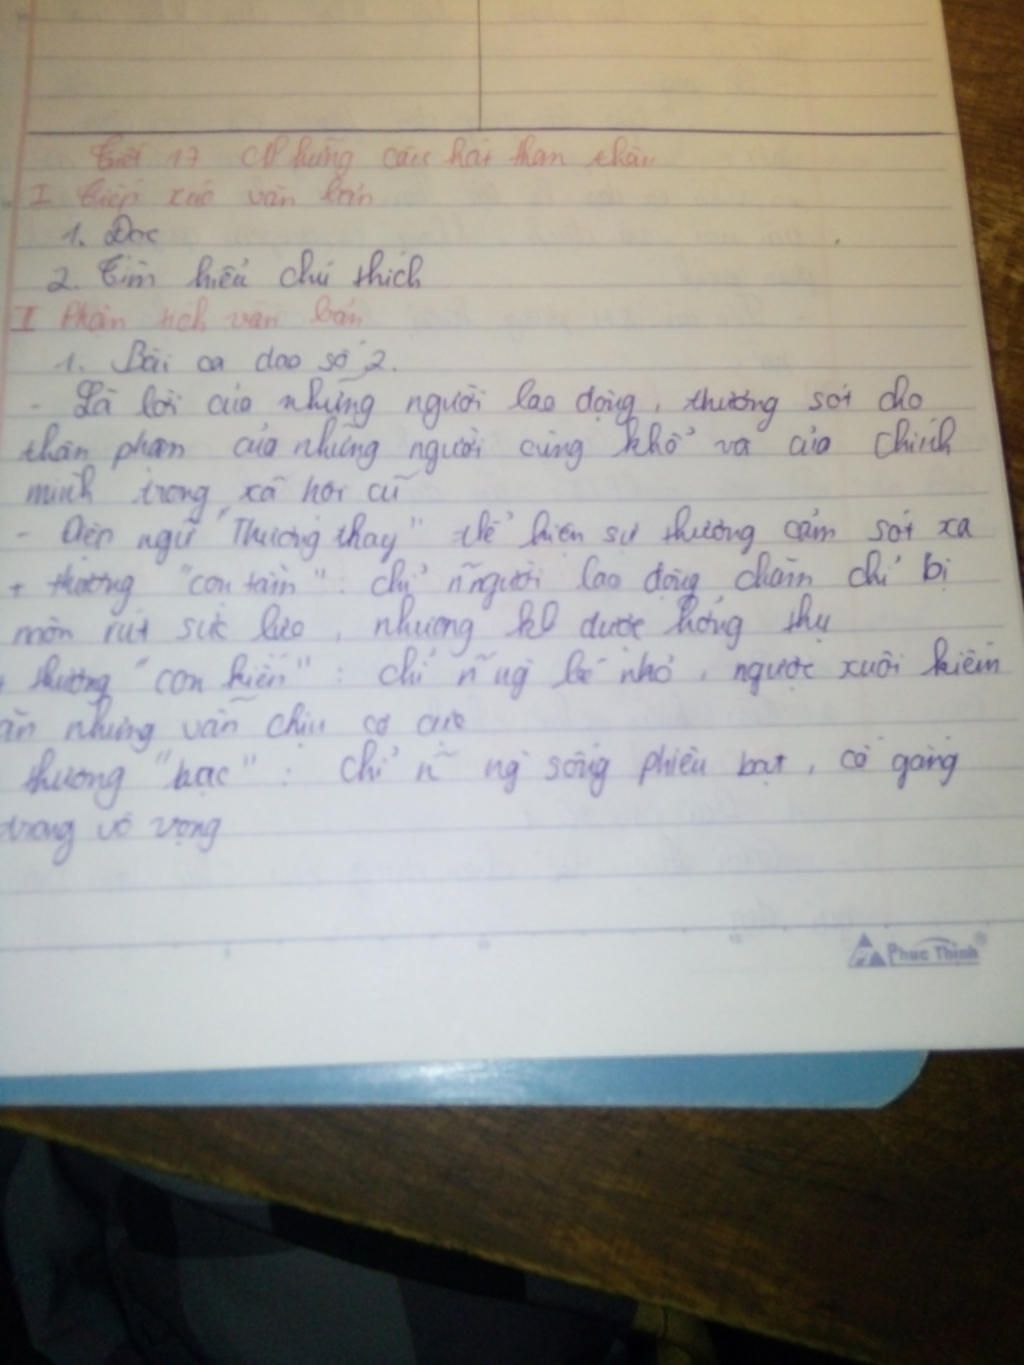 Tiết 17 Những câu hát than thân
I Tiếp xúc văn bản
1. Đọc
2. Tìm hiểu chú thích
II Phân tích văn bản
1. Bài ca dao số 2.
- Là lời của những người lao động, thương sót cho
thân phận của những người cùng khổ và của chính
mình trong xã hội cũ
- Điệp ngữ "Thương thay" thể hiện sự thương cảm sót xa
+ thương "con tằm": chỉ ñ người lao động chăm chỉ bị
mòn rút sức lực, nhưng kô được hưởng thụ
+ thương "con kiến": chỉ ñ ng bé nhỏ, ngược xuôi kiếm
ăn nhưng vẫn chịu cơ cực
thương "hạc": chỉ ñ ng sống phiêu bạt, cố gắng
trong vô vọng
Phuc Thinh